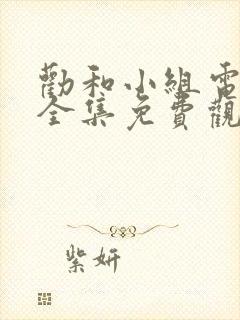 勸和小組電
全集免費觀
紫妍